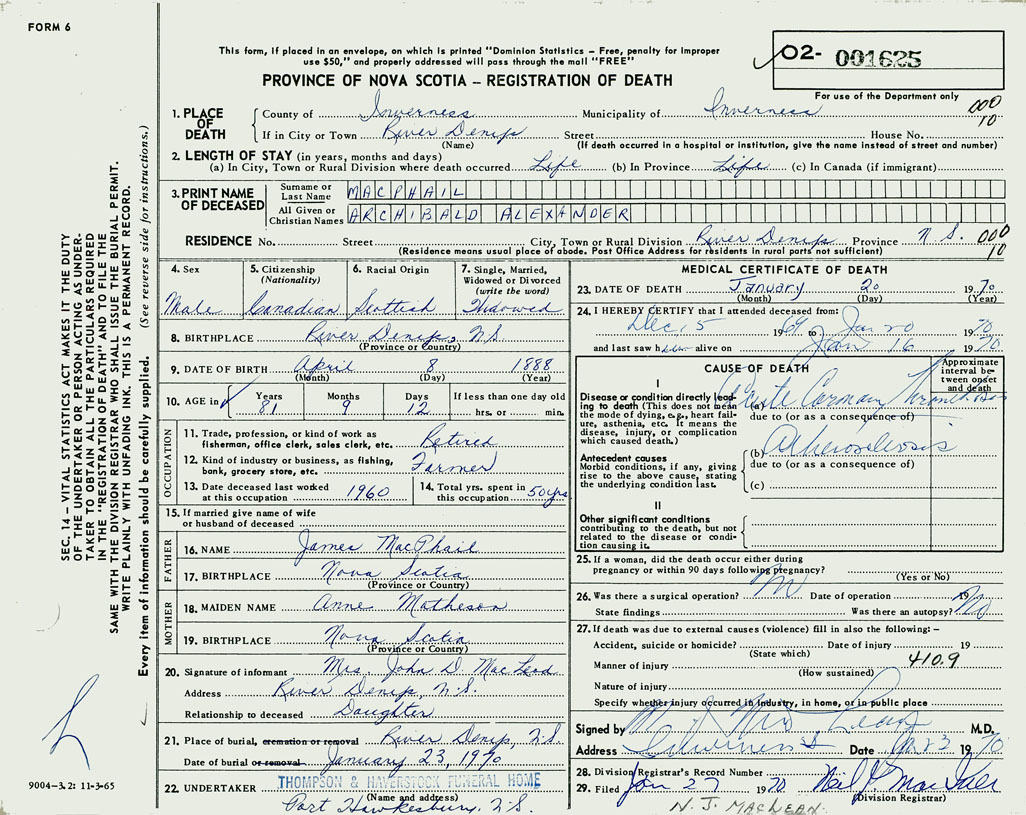 FORM 6
This form, if placed in an envelope, on which is printed "Dominion Statistics – Free, penalty for improper
use $50," and properly addressed will pass through the mail "FREE"
PROVINCE OF NOVA SCOTIA – REGISTRATION OF DEATH
O2- 001625
For use of the Department only
000
10
1. PLACE OF DEATH County of Inverness Municipality of Inverness
If in City or Town River Denys Street House No.
(Name) (If death occurred in a hospital or institution, give the name instead of street and number)
2. LENGTH OF STAY (in years, months and days)
(a) In City, Town or Rural Division where death occurred Life (b) In Province Life (c) In Canada (if immigrant)
3. PRINT NAME OF DECEASED Surname or Last Name MACPHAIL
All Given or Christian Names ARCHIBALD ALEXANDER
RESIDENCE No. Street City, Town or Rural Division River Denys Province N.S. 000
(Residence means usual place of abode. Post Office Address for residents in rural parts not sufficient) 10
4. Sex 5. Citizenship (Nationality) 6. Racial Origin 7. Single, Married, Widowed or Divorced (write the word)
Male Canadian Scottish Widowed
8. BIRTHPLACE River Denys, N.S.
(Province or Country)
9. DATE OF BIRTH April 8 1888
(Month) (Day) (Year)
10. AGE in Years Months Days If less than one day old
81 9 12 hrs. or min.
OCCUPATION
11. Trade, profession, or kind of work as
fisherman, office clerk, sales clerk, etc. Retired
12. Kind of industry or business, as fishing,
bank, grocery store, etc. Farmer
13. Date deceased last worked
at this occupation 1960
14. Total yrs. spent in
this occupation 50 yrs
15. If married give name of wife
or husband of deceased
FATHER
16. NAME James MacPhail
17. BIRTHPLACE Nova Scotia
(Province or Country)
MOTHER
18. MAIDEN NAME Anne Matheson
19. BIRTHPLACE Nova Scotia
(Province or Country)
20. Signature of informant Mrs. John D. MacLeod
Address River Denys, N.S.
Relationship to deceased Daughter
21. Place of burial, cremation or removal River Denys, N.S.
Date of burial or removal January 23, 1970
22. UNDERTAKER THOMPSON & HAVERSTOCK FUNERAL HOME
(Name and address)
Port Hawkesbury, N.S.
MEDICAL CERTIFICATE OF DEATH
23. DATE OF DEATH January 20 1970
(Month) (Day) (Year)
24. I HEREBY CERTIFY that I attended deceased from:
Dec 15 1969 to Jan 20 1970
and last saw him alive on Jan 16 1970
CAUSE OF DEATH
Approximate
interval be-
tween onset
and death
I
Disease or condition directly lead-
ing to death (This does not mean
the mode of dying, e.g., heart fail-
ure, asthenia, etc. It means the
disease, injury, or complication
which caused death.)
(a) Acute Coronary Thrombosis
due to (or as a consequence of)
Antecedent causes
Morbid conditions, if any, giving
rise to the above cause, stating
the underlying condition last.
(b) Atherosclerosis
due to (or as a consequence of)
(c)
II
Other significant conditions
contributing to the death, but not
related to the disease or condi-
tion causing it.
25. If a woman, did the death occur either during
pregnancy or within 90 days following pregnancy?
(Yes or No)
26. Was there a surgical operation? No Date of operation 19
State findings Was there an autopsy? No
27. If death was due to external causes (violence) fill in also the following: –
Accident, suicide or homicide? Date of injury 19
(State which) 410.9
Manner of injury
(How sustained)
Nature of injury
Specify whether injury occurred in industry, in home, or in public place
Signed by M.D.
Address Inverness Date Jan 23 1970
28. Division Registrar's Record Number
29. Filed Jan 27 1970 Neil J MacLean
(Division Registrar)
N. J. MACLEAN.
SEC. 14 – VITAL STATISTICS ACT MAKES IT THE DUTY
OF THE UNDERTAKER OR PERSON ACTING AS UNDER-
TAKER TO OBTAIN ALL THE PARTICULARS REQUIRED
IN THE "REGISTRATION OF DEATH" AND TO FILE THE
SAME WITH THE DIVISION REGISTRAR WHO SHALL ISSUE THE BURIAL PERMIT.
WRITE PLAINLY WITH UNFADING INK. THIS IS A PERMANENT RECORD.
Every item of information should be carefully supplied. (See reverse side for instructions.)
9004–3.2: 11-3-65